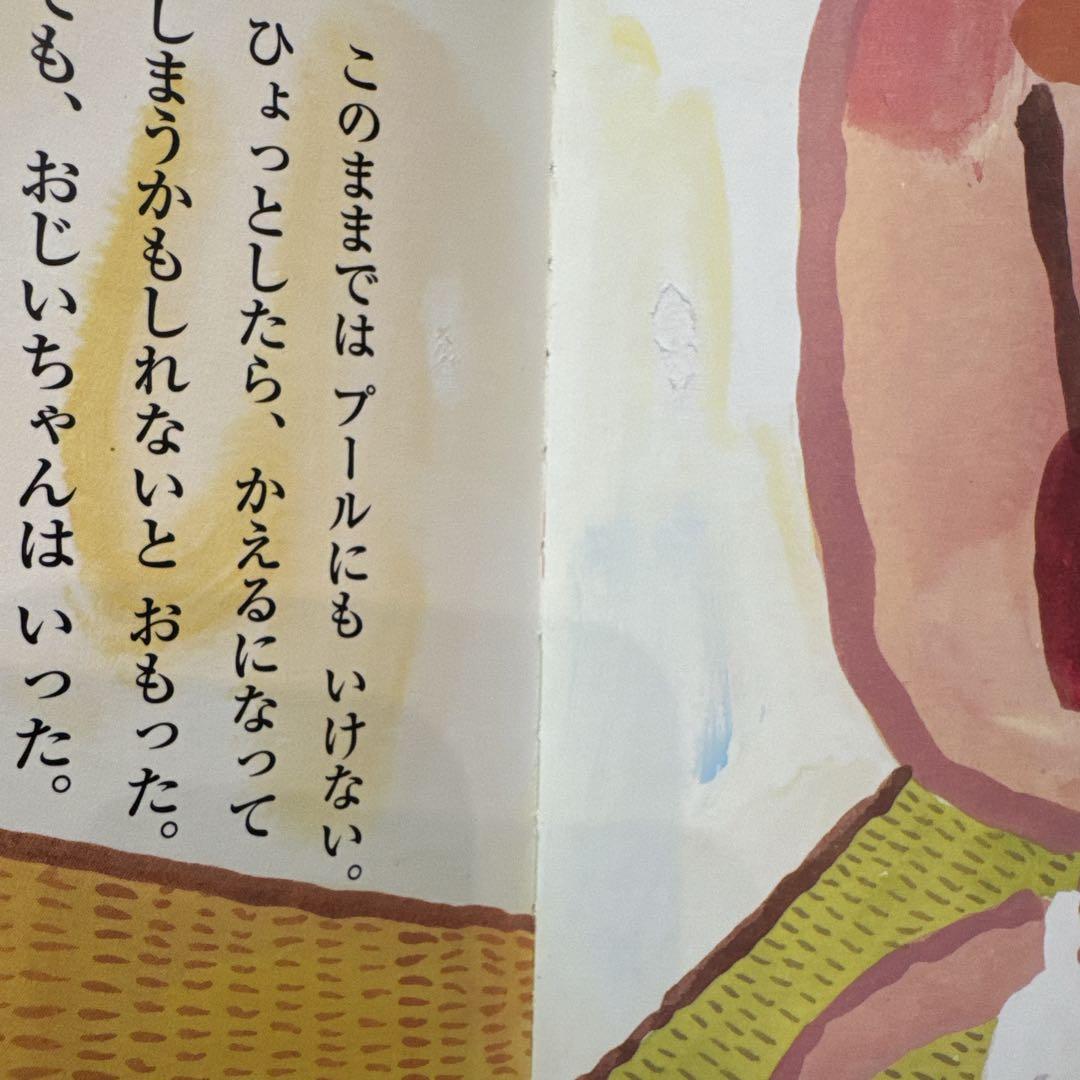 このままでは プールにも いけない。
ひょっとしたら、 かえるになって
しまうかもしれないと おもった。
も、 おじいちゃんは いった。